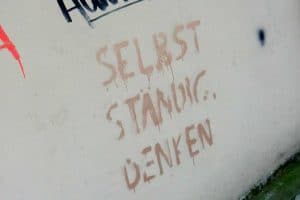 SELBST
STÄNDIG.
DENKEN